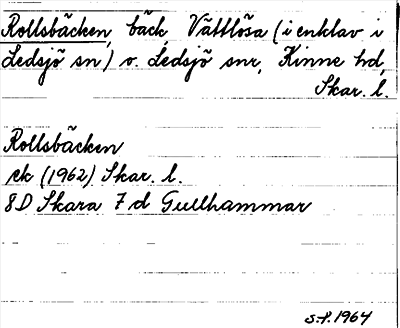 Rollsbäcken, bäck Vättlösa (i enklav i
Ledsjö sn) v. Ledsjö snr, Kinne hd,
Skar. l.
Rollsbäcken
ek (1962) Skar. l.
8D Skara 7d Gullhammar
s.f. 1964